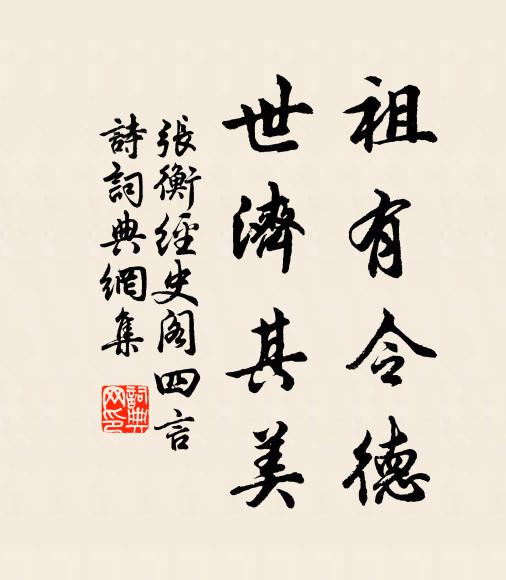 祖有令德
世濟其美
張衡經史閣四言
詩詞典網集
詞典
网印